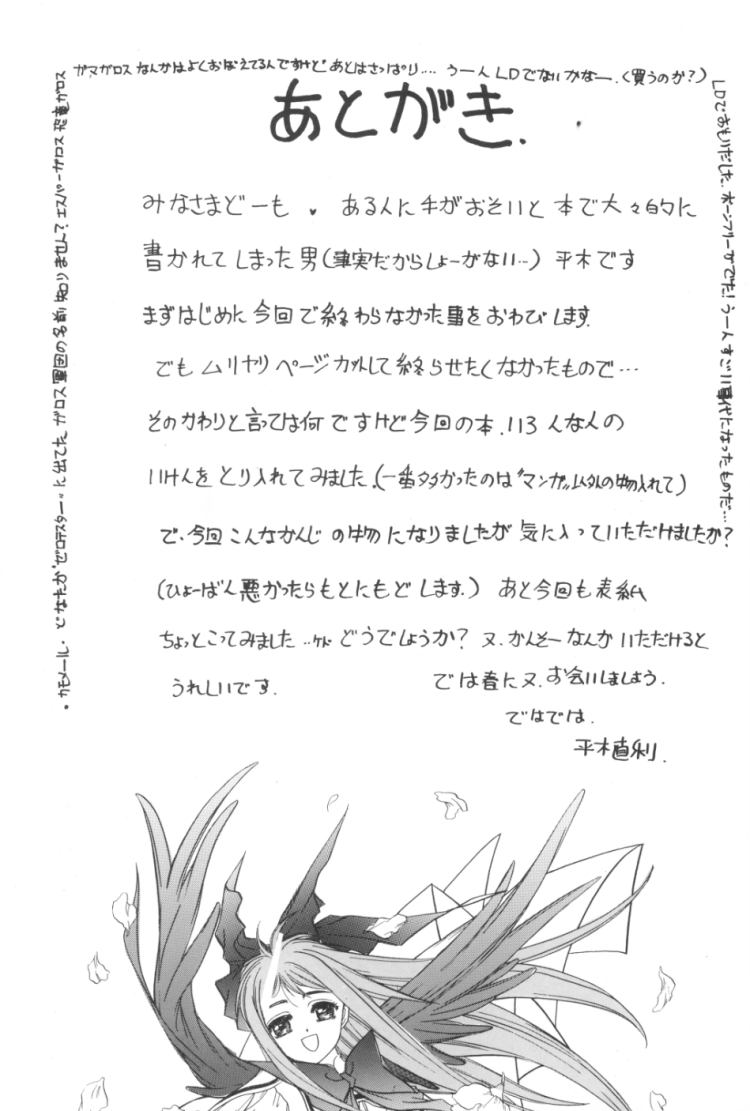 あとがき.
みなさまどーも ♥ ある人に手がおそいと本で大々的に
書かれてしまった男(事実だからしょーがない…)平木です
まずはじめに今回で終わらなかった事をおわびします.
でもムリヤリページカットして終らせたくなかったもので…
そのかわりと言っては何ですけど今回の本.いろんな人の
いけんをとり入れてみました.(一番多かったのは〝マンガ〟以外の物入れて)
で、今回こんなかんじの物になりましたが気に入っていただけましたか?
(ひょーばん悪かったらもとにもどします.)あと今回も表紙
ちょっとこってみました…ケドどうでしょうか?又、かんそーなんかいただけると
うれしいです.
では春に又、お会いしましょう.
ではでは.
平木直利.
・カモメール.どなたか〝ゼロテスター〟に出てた.ガロス軍団の名前知りません?エスパーガロス恐竜ガロス
ガマガロスなんかはよくおぼえてるんですけど、あとはさっぱり…. うーんLDででないかなー.(買うのか?)
LDでおもいだした.ボーンフリーがでた!うーんすごい事代になったものだ…